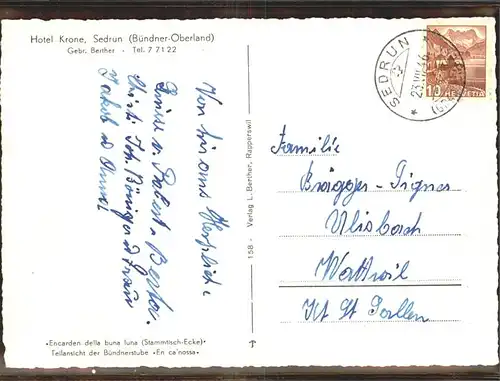 Hotel Krone, Sedrun (Bündner-Oberland)
Gebr. Berther - Tel. 7 71 22
Von uns Herzliche
Grüsse v. Robert u. Berta.
Chr. Joh. Böniger u Frau
Jakob u Anna
«Encarden della buna luna (Stammtisch-Ecke)»
Teilansicht der Bündnerstube «En ca'nossa»
158 - Verlag L. Berther, Rapperswil
SEDRUN
23.VII.46
10 HELVETIA
Familie
Brägger-
Ulisbach
Wattwil
Kt St Gallen